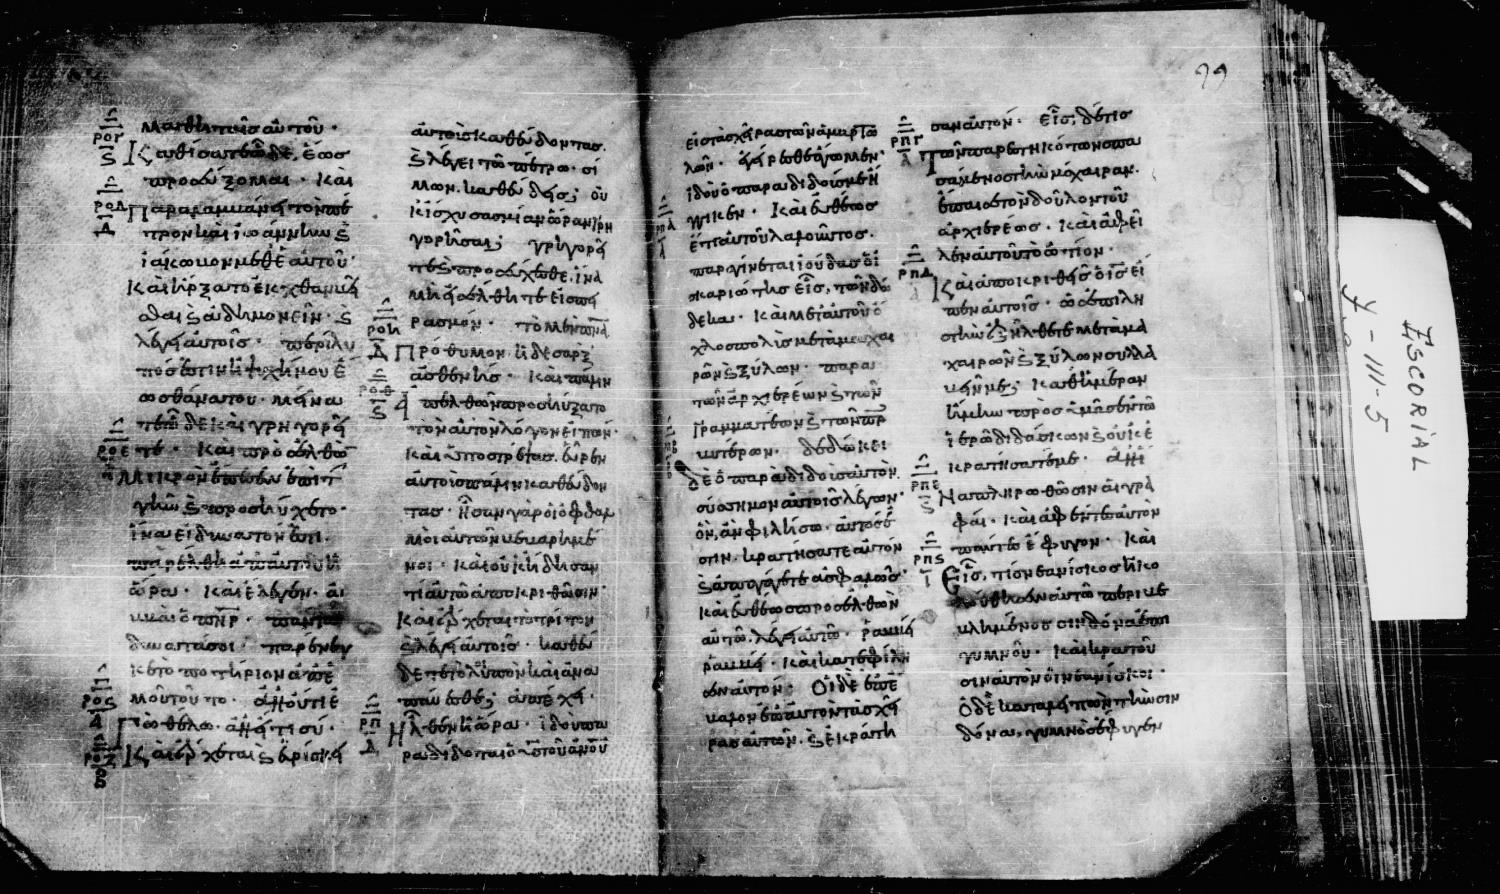 μαθηταῖς αὐτοῦ·
Καθίσατε ὧδε, ἕως
προσεύξομαι· Καὶ
Παραλαμβάνει τὸν πέ
τρον καὶ ἰωάννην ϗ
ἰάκωβον μεθ' ἑαυτοῦ·
Καὶ ἤρξατο ἐκθαμβεῖ
σθαι ϗ ἀδημονεῖν· ϗ
λέγει αὐτοῖς· περίλυ
πός ἐστιν ἡ ψυχή μου ἕ
ως θανάτου· μείνα
τε ὧδε καὶ γρηγορεῖ
τε· Καὶ προσελθὼ
Μικρὸν ἔπεσεν ἐπὶ τ
γῆν ϗ προσηύχετο·
ἵνα εἰ δυνατόν ἐστι.
παρέλθῃ ἀπ' αὐτοῦ ἡ
ὥρα· Καὶ ἔλεγεν· ἀ
ββᾶ ὁ πηρ· πάντα
δυνατά σοι· παρένεγ
κε τὸ ποτήριον ἀπ' ἐ
μοῦ τοῦτο· ἀλλ' οὐ τί ἐ
Γὼ θέλω· ἀλλ' εἴ τι σύ·
Καὶ ἔρχεται ϗ εὑρίσκει
αὐτοὺς καθεύδοντας.
ϗ λέγει τῶ πέτρω· σί
μων. καθεύδεις; οὐ
κ ἴσχυσας μίαν ὥραν γρη
γορῆσαι; γρηγορεῖ
τε ϗ προσεύχεσθε, ἵνα
μὴ εἰσέλθητε εἰς πει
ρασμόν· τὸ μὲν πνα
Πρόθυμον. ἡ δὲ σὰρξ
ἀσθενής· Καὶ πάλιν
ἀπελθὼν προσηύξατο
τὸν αὐτὸν λόγον εἰπών·
Καὶ ὑποστρέψας. εὗρεν
αὐτοὺς πάλιν καθεύδον
τας· ἦσαν γὰρ οἱ ὀφθαλ
μοὶ αὐτῶν βεβαρημέ
νοι· Καὶ οὐκ ἤδεισαν
τί αὐτῶ ἀποκριθῶσιν·
Καὶ ἔρχεται τὸ τρίτον
ϗ λέγει αὐτοῖς· καθεύ
δετε τὸ λοιπὸν καὶ ἀνα
παύεσθε; ἀπέχει·
Ἦλθεν ἡ ὥρα· ἰδοὺ πα
ραδίδοται ὁ υς τοῦ ανου
99
εἰς τὰς χεῖρας τῶν ἁμαρτω
λῶν· ἐγείρεσθε ἄγωμεν·
ἰδοὺ ὁ παραδιδούς με ἤ
γγικεν· Καὶ εὐθέως
ἔτι αὐτοῦ λαλοῦντος.
παραγίνεται ἰούδας ὁ ἰ
σκαριώτης εἷς, τῶν δώ
δεκα· Καὶ μετ' αὐτοῦ ὁ
χλος πολὺς μετὰ μαχαι
ρῶν ϗ ξύλων· παρὰ
τῶν ἀρχιερέων ϗ τῶν
Γραμματέων ϗ τῶν πρ
βυτέρων· δεδώκει
δὲ ὁ παραδιδοὺς αὐτὸν
σύσσημον αὐτοῖς λέγων·
ὃν ἂν φιλήσω· αὐτός ἐ
στιν. κρατήσατε αὐτὸν
ϗ ἀπαγάγετε ἀσφαλῶς·
Καὶ εὐθέως προσελθὼν
αὐτῶ. λέγει αὐτῶ· ῥαββεί
ῥαββεί· Καὶ κατεφίλη
σεν αὐτόν· Οἱ δὲ ἐπέ
βαλον ἐπ' αὐτὸν τὰς χεῖ
ρας αὐτῶν. ϗ ἐκράτη
σαν αὐτόν· Εἷς; δέ τις
Τῶν παρεστηκότων σπα
σάμενος τὴν μάχαιραν.
ἔπαισε τὸν δοῦλον τοῦ
ἀρχιερέως· Καὶ ἀφεῖ
λεν αὐτοῦ τὸ ὠτίον·
Καὶ ἀποκριθεὶς ὁ ις εἶ
πεν αὐτοῖς· ὡς ἐπὶ λη
στὴν ἐξήλθετε μετὰ μα
χαιρῶν ϗ ξύλων συλλα
βεῖν με; Καθ' ἡμέραν
ἤμην πρὸς ὑμᾶς ἐν τῶ
ἱερῶ διδάσκων ϗ οὐκ ἐ
κρατήσατέ με· ἀλλ' ἵ
Να πληρωθῶσιν αἱ γρα
φαί· Καὶ ἀφέντες αὐτὸν
πάντες ἔφυγον· Καὶ
Εἷς, τις νεανίσκος ἠκο
λούθησεν αὐτῶ περιβε
βλημένος σινδόνα ἐπὶ
γυμνοῦ· Καὶ κρατοῦ
σιν αὐτὸν οἱ νεανίσκοι·
Ὁ δὲ καταλιπὼν τὴν σιν
δόνα, γυμνὸς ἔφυγεν
ESCORIAL
Y-III-5